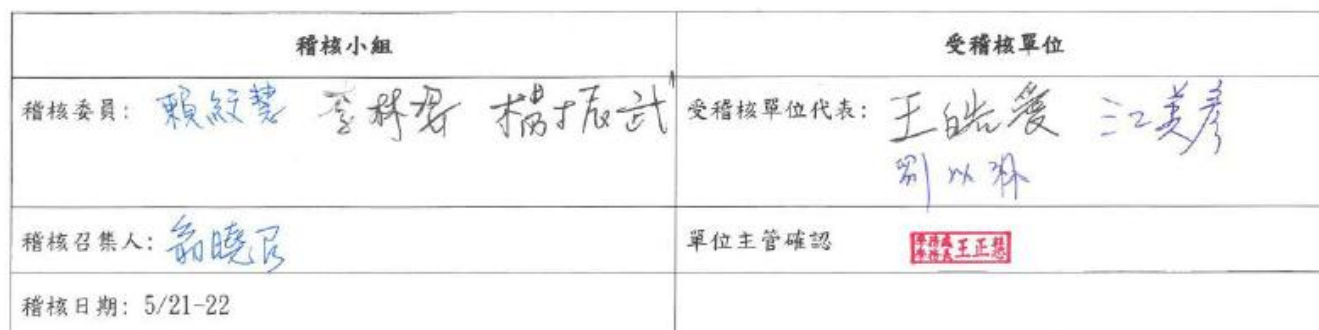 稽核小組
受稽核單位
稽核委員: 賴紋慧 李林君 楊振武
受稽核單位代表: 王皓愛 江美彥
劉以琳
稽核召集人: 翁曉民
單位主管確認 王正慧
稽核日期: 5/21-22